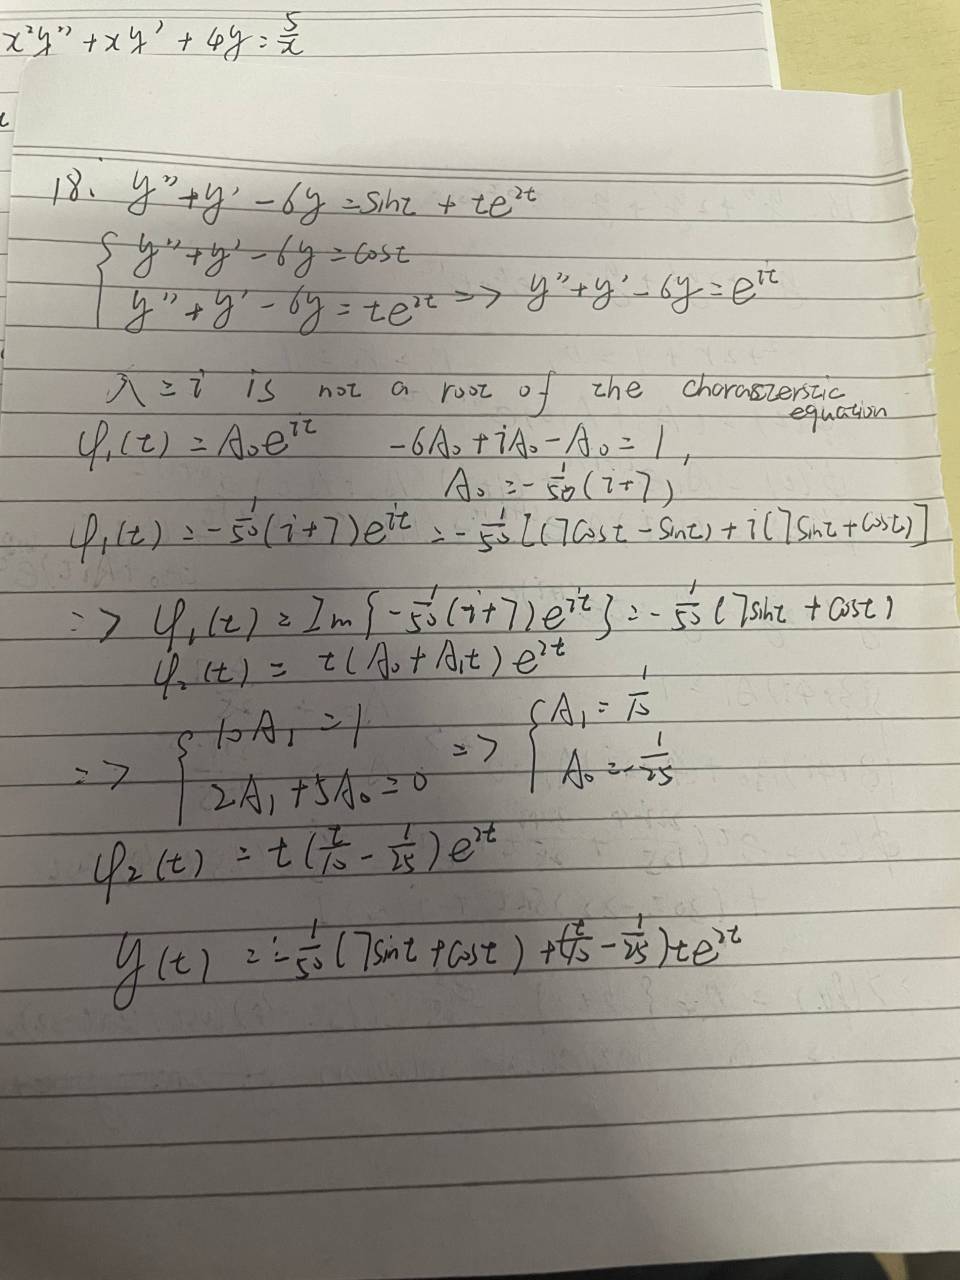 x²y'' + xy' + 4y = 5/x
18. y'' + y' - 6y = sint + te^{2t}
{ y'' + y' - 6y = cost
y'' + y' - 6y = te^{2t} => y'' + y' - 6y = e^{it}
λ = i is not a root of the charaszerstic
equation
φ₁(t) = A₀e^{it} -6A₀ + iA₀ - A₀ = 1,
A₀ = -1/50 (i+7)
φ₁(t) = -1/50 (i+7)e^{it} = -1/50 [(7cost - sint) + i(7sint + cost)]
=> φ₁(t) = Im{-1/50 (i+7)e^{it}} = -1/50 (7sint + cost)
φ₂(t) = t(A₀ + A₁t)e^{2t}
=> { 10A₁ = 1 => { A₁ = 1/10
2A₁ + 5A₀ = 0 A₀ = -1/25
φ₂(t) = t(t/10 - 1/25)e^{2t}
y(t) = -1/50 (7sint + cost) + (t/10 - 1/25)te^{2t}